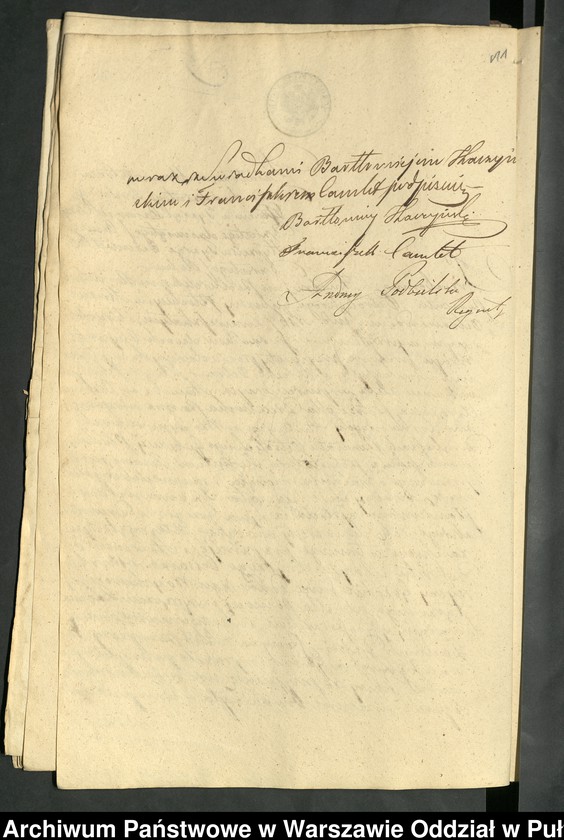 wraz ze Swiadkami Bartłomiejem Skaczyń
skim i Franciszkiem Camlet podpisani
Bartłomiey Skaczyński
Franciszek Camlet
Podbielski
Regent
Archiwum Państwowe w Warszawie Oddział w Puł